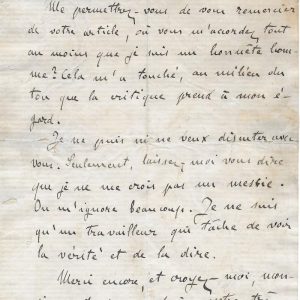 Me permettrez-vous de vous remercier
de votre article, où vous m'accordez tout
au moins que je suis un honnête hom-
me? Cela m'a touché, au milieu du
ton que la critique prend à mon é-
gard.
Je ne puis ni ne veux discuter avec
vous. Seulement, laissez-moi vous dire
que je ne me crois pas un messie.
On m'ignore beaucoup. Je ne suis
qu'un travailleur qui tâche de voir
la vérité et de la dire.
Merci encore, et croyez-moi, mon-